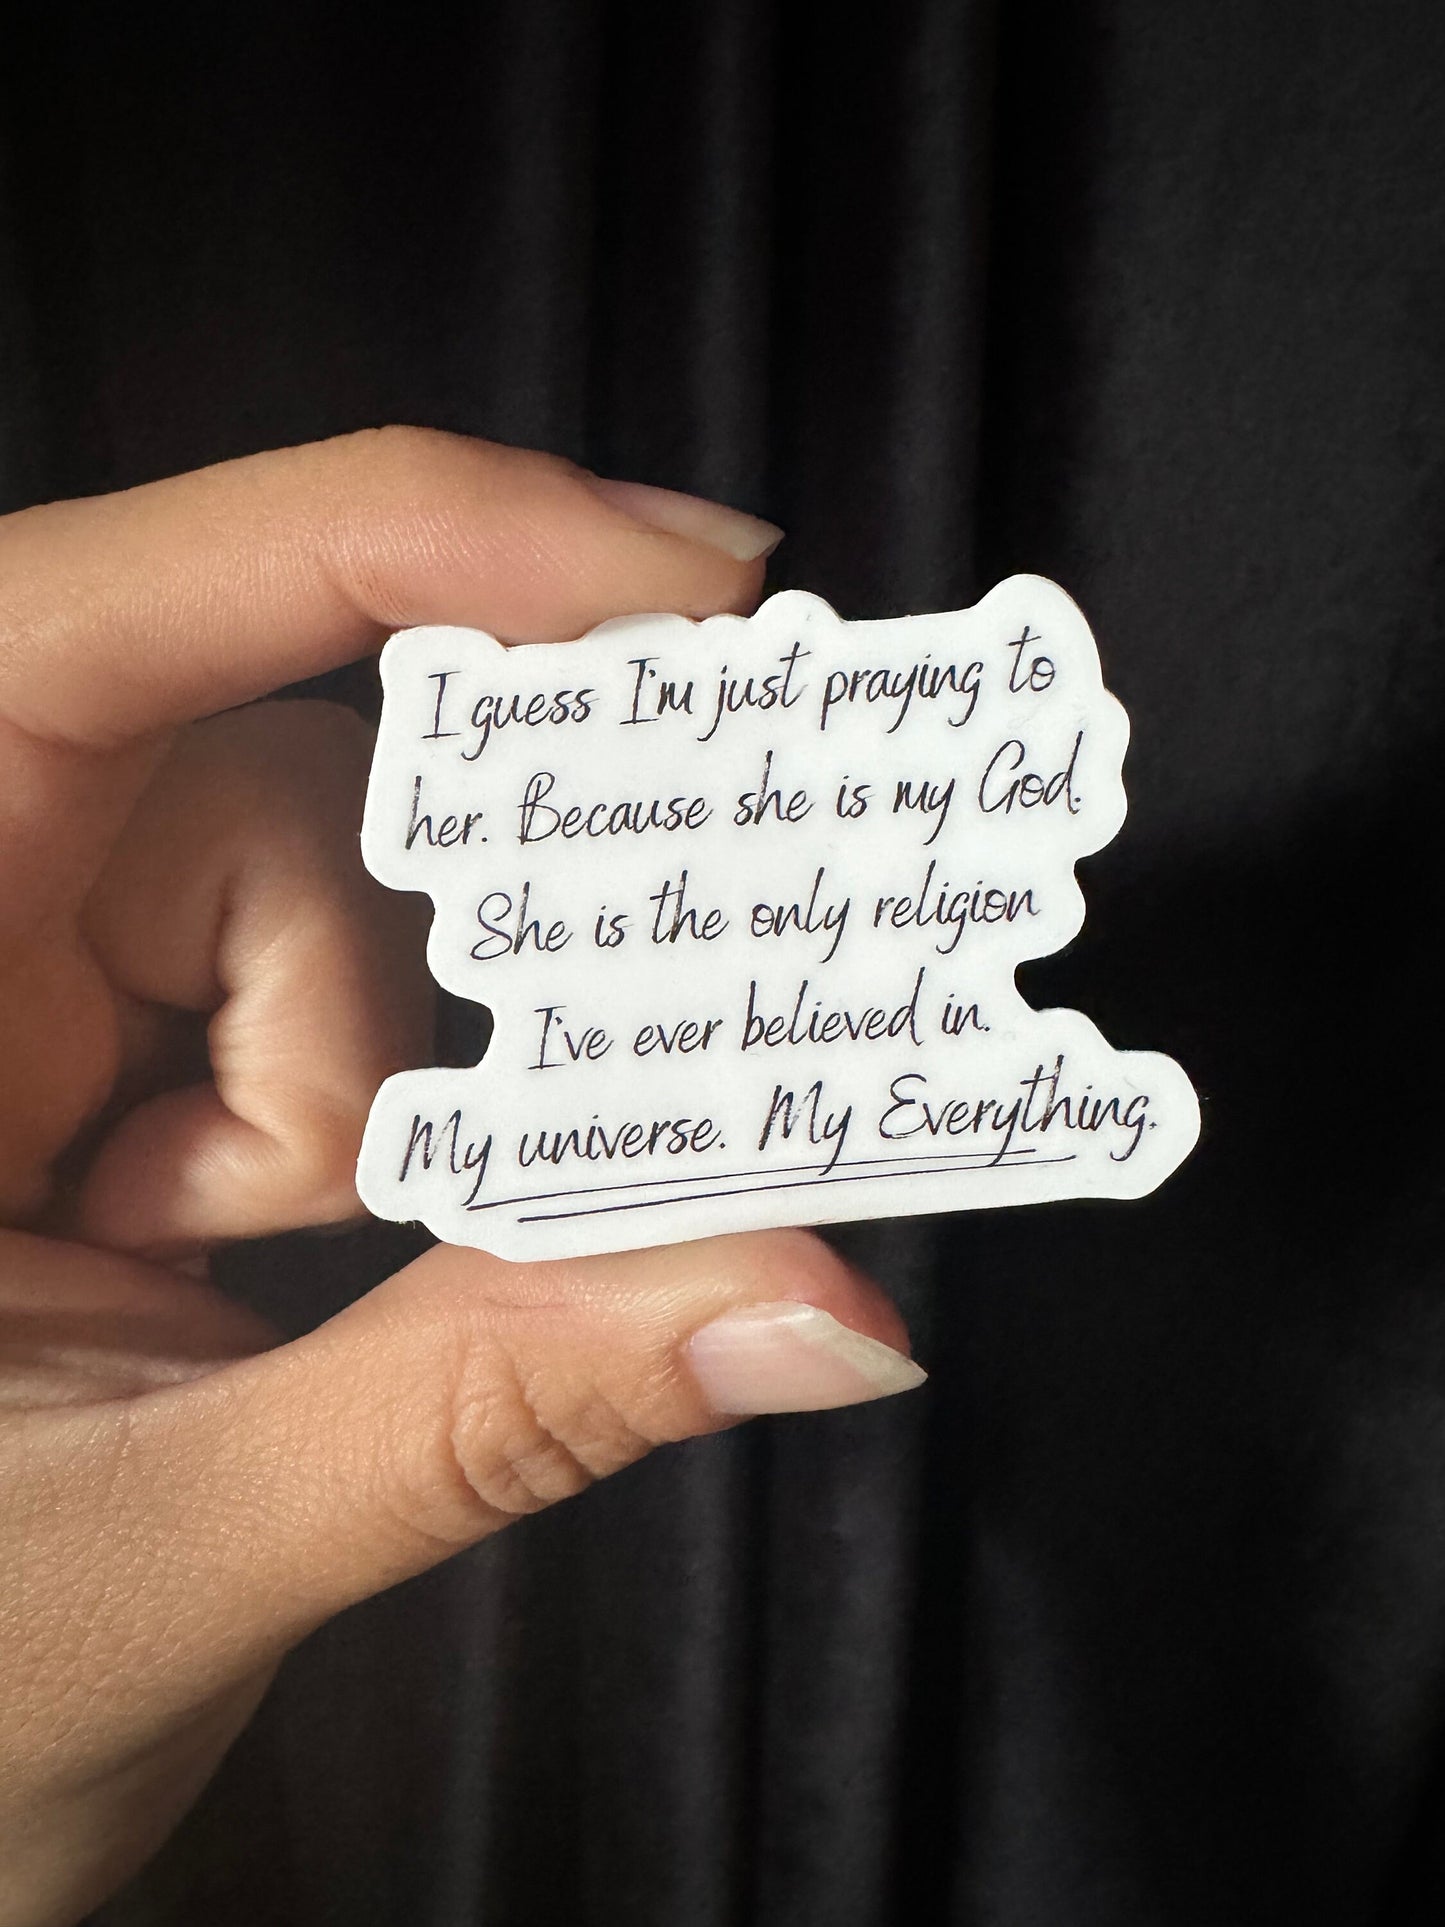 I guess I'm just praying to
her. Because she is my God.
She is the only religion
I've ever believed in.
My universe. My Everything.